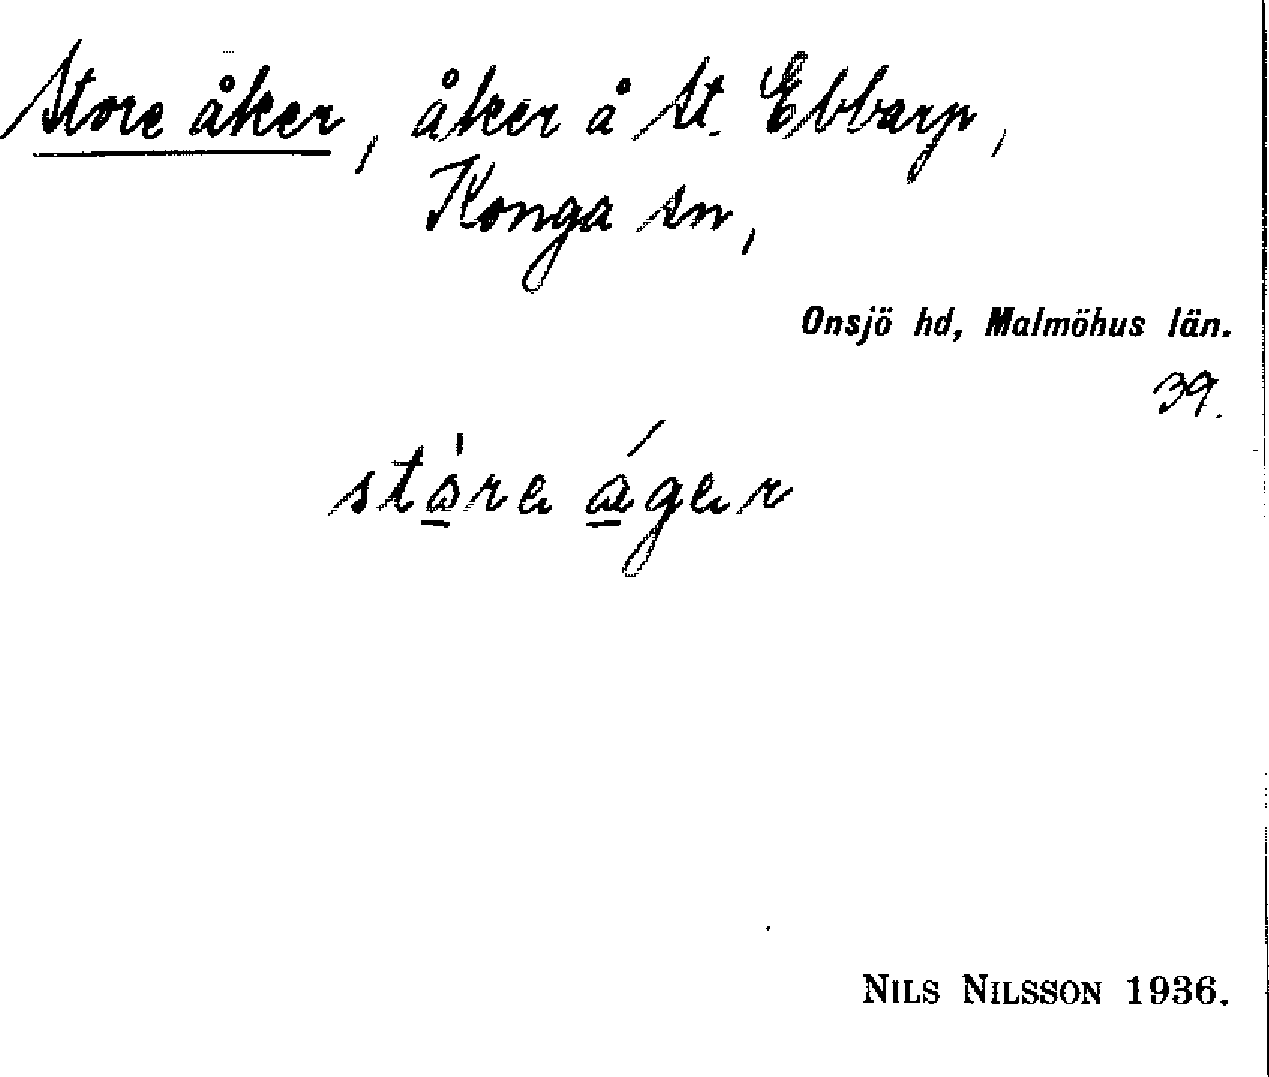 Store åker, åker å St. Ebbarp,
Konga sn,
Onsjö hd, Malmöhus län.
39.
store ager
NILS NILSSON 1936.